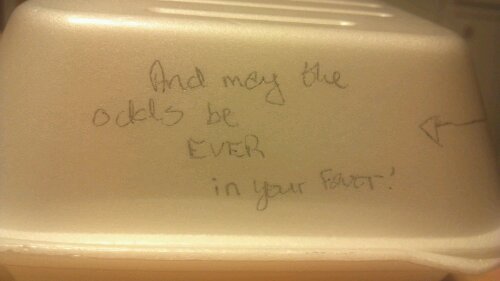 And may the
odds be
EVER
in your Favor!